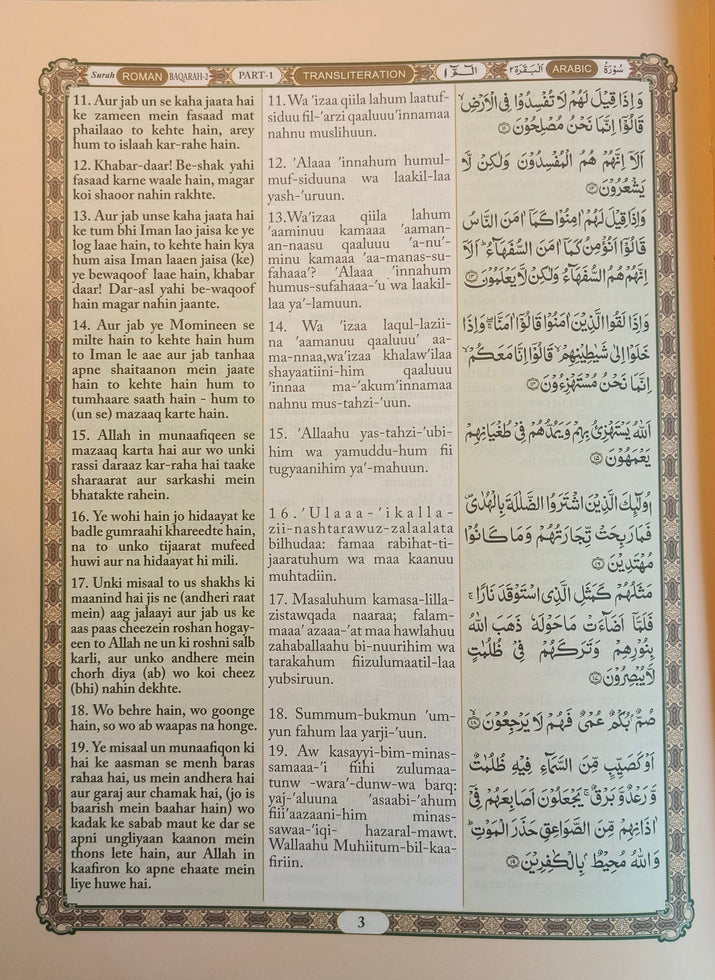 Surah ROMAN BAQARAH-2 PART-1 TRANSLITERATION الٓمّٓ ١ اَلْبَقَرَة ٢ ARABIC سُوْرَةُ
11. Aur jab un se kaha jaata hai
ke zameen mein fasaad mat
phailaao to kehte hain, arey
hum to islaah kar-rahe hain.
12. Khabar-daar! Be-shak yahi
fasaad karne waale hain, magar
koi shaoor nahin rakhte.
13. Aur jab unse kaha jaata hai
ke tum bhi Iman lao jaisa ke ye
log laae hain, to kehte hain kya
hum aisa Iman laaen jaisa (ke)
ye bewaqoof laae hain, khabar
daar! Dar-asl yahi be-waqoof
hain magar nahin jaante.
14. Aur jab ye Momineen se
milte hain to kehte hain hum
to Iman le aae aur jab tanhaa
apne shaitaanon mein jaate
hain to kehte hain hum to
tumhaare saath hain - hum to
(un se) mazaaq karte hain.
15. Allah in munaafiqeen se
mazaaq karta hai aur wo unki
rassi daraaz kar-raha hai taake
sharaarat aur sarkashi mein
bhatakte rahein.
16. Ye wohi hain jo hidaayat ke
badle gumraahi khareedte hain,
na to unko tijaarat mufeed
huwi aur na hidaayat hi mili.
17. Unki misaal to us shakhs ki
maanind hai jis ne (andheri raat
mein) aag jalaayi aur jab us ke
aas paas cheezein roshan hogay-
een to Allah ne un ki roshni salb
karli, aur unko andhere mein
chorh diya (ab) wo koi cheez
(bhi) nahin dekhte.
18. Wo behre hain, wo goonge
hain, so wo ab waapas na honge.
19. Ye misaal un munaafiqon ki
hai ke aasman se menh baras
rahaa hai, us mein andhera hai
aur garaj aur chamak hai, (jo is
baarish mein baahar hain) wo
kadak ke sabab maut ke dar se
apni ungliyaan kaanon mein
thons lete hain, aur Allah in
kaafiron ko apne ehaate mein
liye huwe hai.
11. Wa 'izaa qiila lahum laatuf-
siduu fil-'arzi qaaluuu'innamaa
nahnu muslihuun.
12. 'Alaaa 'innahum humul-
muf-siduuna wa laakil-laa
yash-'uruun.
13.Wa'izaa qiila lahum
'aaminuu kamaaa 'aaman-
an-naasu qaaluuu 'a-nu'-
minu kamaaa 'aa-manas-su-
fahaaa'? 'Alaaa 'innahum
humus-sufahaaa-'u wa laakil-
laa ya'-lamuun.
14. Wa 'izaa laqul-lazii-
na 'aamanuu qaaluuu' aa-
ma-nnaa,wa'izaa khalaw'ilaa
shayaatiini-him qaaluuu
'innaa ma-'akum'innamaa
nahnu mus-tahzi-'uun.
15. 'Allaahu yas-tahzi-'ubi-
him wa yamuddu-hum fii
tugyaanihim ya'-mahuun.
16. 'Ulaaa-'ikalla-
zii-nashtarawuz-zalaalata
bilhudaa: famaa rabihat-ti-
jaaratuhum wa maa kaanuu
muhtadiin.
17. Masaluhum kamasa-lilla-
zistawqada naaraa; falam-
maaa' azaaa-'at maa hawlahuu
zahaballaahu bi-nuurihim wa
tarakahum fiizulumaatil-laa
yubsiruun.
18. Summum-bukmun 'um-
yun fahum laa yarji-'uun.
19. Aw kasayyi-bim-minas-
samaaa-'i fiihi zulumaa-
tunw -wara'-dunw-wa barq:
yaj-'aluuna 'asaabi-'ahum
fiii'aazaani-him minas-
sawaa-'iqi- hazaral-mawt.
Wallaahu Muhiitum-bil-kaa-
firiin.
وَاِذَا قِيْلَ لَهُمْ لَا تُفْسِدُوْا فِى الْاَرْضِۙ
قَالُوْٓا اِنَّمَا نَحْنُ مُصْلِحُوْنَ ۝١١
اَلَآ اِنَّهُمْ هُمُ الْمُفْسِدُوْنَ وَلٰكِنْ لَّا
يَشْعُرُوْنَ ۝١٢
وَاِذَا قِيْلَ لَهُمْ اٰمِنُوْا كَمَآ اٰمَنَ النَّاسُ
قَالُوْٓا اَنُؤْمِنُ كَمَآ اٰمَنَ السُّفَهَآءُ ؕ اَلَآ
اِنَّهُمْ هُمُ السُّفَهَآءُ وَلٰكِنْ لَّا يَعْلَمُوْنَ ۝١٣
وَاِذَا لَقُوا الَّذِيْنَ اٰمَنُوْا قَالُوْٓا اٰمَنَّا ۖۚ وَاِذَا
خَلَوْا اِلٰى شَيٰطِيْنِهِمْ ۙ قَالُوْٓا اِنَّا مَعَكُمْ ۙ
اِنَّمَا نَحْنُ مُسْتَهْزِءُوْنَ ۝١٤
اَللّٰهُ يَسْتَهْزِئُ بِهِمْ وَيَمُدُّهُمْ فِىْ طُغْيَانِهِمْ
يَعْمَهُوْنَ ۝١٥
اُولٰٓئِكَ الَّذِيْنَ اشْتَرَوُا الضَّلٰلَةَ بِالْهُدٰى ۖ
فَمَا رَبِحَتْ تِّجَارَتُهُمْ وَمَا كَانُوْا
مُهْتَدِيْنَ ۝١٦
مَثَلُهُمْ كَمَثَلِ الَّذِى اسْتَوْقَدَ نَارًا ۚ
فَلَمَّآ اَضَآءَتْ مَا حَوْلَهٗ ذَهَبَ اللّٰهُ
بِنُوْرِهِمْ وَتَرَكَهُمْ فِىْ ظُلُمٰتٍ
لَّا يُبْصِرُوْنَ ۝١٧
صُمٌّۢ بُكْمٌ عُمْىٌ فَهُمْ لَا يَرْجِعُوْنَ ۝١٨
اَوْ كَصَيِّبٍ مِّنَ السَّمَآءِ فِيْهِ ظُلُمٰتٌ
وَّرَعْدٌ وَّبَرْقٌ ۚ يَجْعَلُوْنَ اَصَابِعَهُمْ فِىْٓ
اٰذَانِهِمْ مِّنَ الصَّوَاعِقِ حَذَرَ الْمَوْتِ ؕ
وَاللّٰهُ مُحِيْطٌۢ بِالْكٰفِرِيْنَ ۝١٩
3